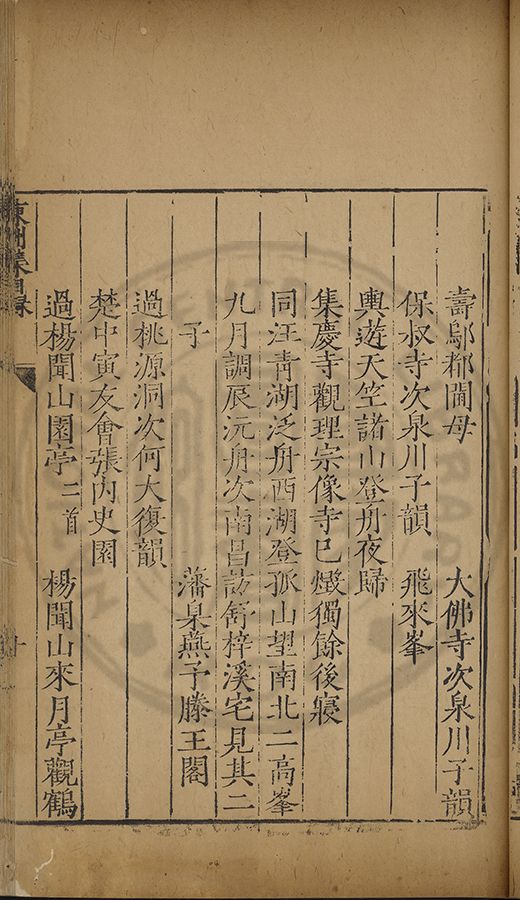 壽鄔都閫母　大佛寺次泉川子韻
保叔寺次泉川子韻　飛來峯
輿遊天竺諸山登舟夜歸
集慶寺觀理宗像寺已燬獨餘後寢
同汪青湖泛舟西湖登孤山望南北二高峯
九月調辰沅舟次南昌訪舒梓溪宅見其二
子　藩臬燕予滕王閣
過桃源洞次何大復韻
楚中寅友會張內史園
過楊聞山園亭二首　楊聞山來月亭觀鶴
東洲集目錄
十